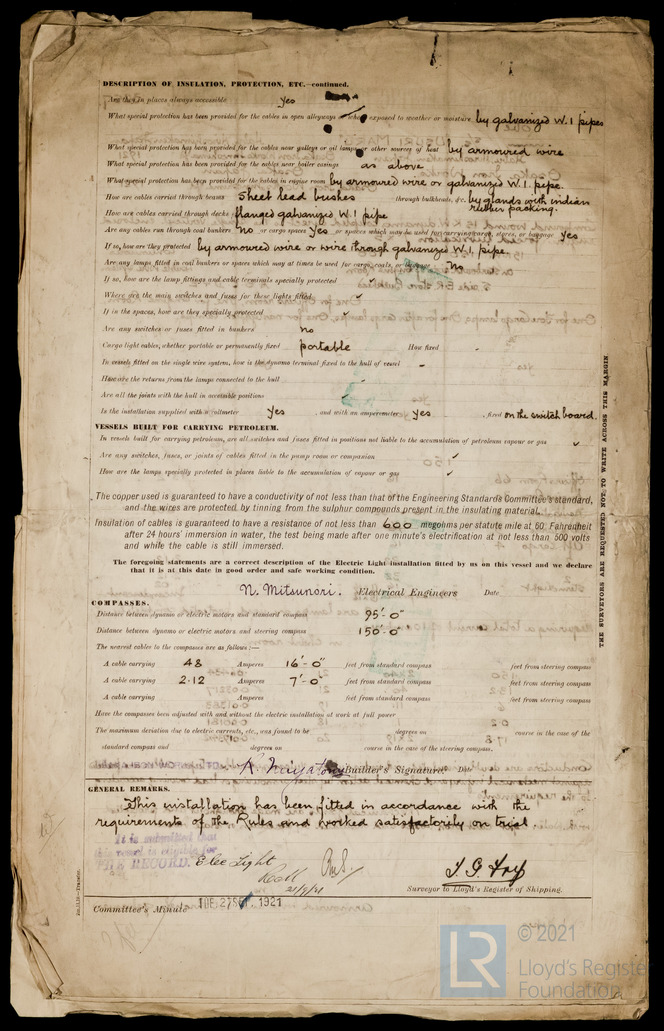 DESCRIPTION OF INSULATION, PROTECTION, ETC.—continued.
Are they in places always accessible yes
What special protection has been provided for the cables in open alleyways where exposed to weather or moisture by galvanized W.I pipes
What special protection has been provided for the cables near galleys or oil lamps or other sources of heat by armoured wire
What special protection has been provided for the cables near boiler casings as above
What special protection has been provided for the cables in engine room by armoured wire or galvanized W.I. pipe.
How are cables carried through beams Sheet lead bushes through bulkheads, &c. by glands with indian rubber packing.
How are cables carried through decks flanged galvanized W.I pipe
Are any cables run through coal bunkers no or cargo spaces yes or spaces which may be used for carrying cargo, stores, or baggage yes
If so, how are they protected by armoured wire or wire through galvanized W.I pipe.
Are any lamps fitted in coal bunkers or spaces which may at times be used for cargo, coals, or baggage no
If so, how are the lamp fittings and cable terminals specially protected
Where are the main switches and fuses for these lights fitted
If in the spaces, how are they specially protected
Are any switches or fuses fitted in bunkers no
Cargo light cables, whether portable or permanently fixed portable How fixed -
In vessels fitted on the single wire system, how is the dynamo terminal fixed to the hull of vessel
How are the returns from the lamps connected to the hull
Are all the joints with the hull in accessible positions
Is the installation supplied with a voltmeter yes , and with an amperemeter yes , fixed on the switch board.
VESSELS BUILT FOR CARRYING PETROLEUM.
In vessels built for carrying petroleum, are all switches and fuses fitted in positions not liable to the accumulation of petroleum vapour or gas
Are any switches, fuses, or joints of cables fitted in the pump room or companion
How are the lamps specially protected in places liable to the accumulation of vapour or gas
The copper used is guaranteed to have a conductivity of not less than that of the Engineering Standards Committee's standard,
and the wires are protected by tinning from the sulphur compounds present in the insulating material.
Insulation of cables is guaranteed to have a resistance of not less than 600 megohms per statute mile at 60° Fahrenheit
after 24 hours' immersion in water, the test being made after one minute's electrification at not less than 500 volts
and while the cable is still immersed.
The foregoing statements are a correct description of the Electric Light installation fitted by us on this vessel and we declare
that it is at this date in good order and safe working condition.
N. Mitsunori. Electrical Engineers Date
COMPASSES.
Distance between dynamo or electric motors and standard compass 95'-0"
Distance between dynamo or electric motors and steering compass 150'-0"
The nearest cables to the compasses are as follows:—
A cable carrying 48 Amperes 16'-0" feet from standard compass feet from steering compass
A cable carrying 2.12 Amperes 7'-0" feet from standard compass feet from steering compass
A cable carrying Amperes feet from standard compass feet from steering compass
Have the compasses been adjusted with and without the electric installation at work at full power
The maximum deviation due to electric currents, etc., was found to be degrees on course in the case of the
standard compass and degrees on course in the case of the steering compass.
Builder's Signature. Date
GENERAL REMARKS.
This installation has been fitted in accordance with the
requirements of the Rules and worked satisfactorily on trial.
It is submitted that
this vessel is eligible for
THE RECORD. Elec Light
21/9/21
Surveyor to Lloyd's Register of Shipping.
Committee's Minute TUE. 27 SEP. 1921
THE SURVEYORS ARE REQUESTED NOT TO WRITE ACROSS THIS MARGIN
LR
© 2021
Lloyd's Register
Foundation